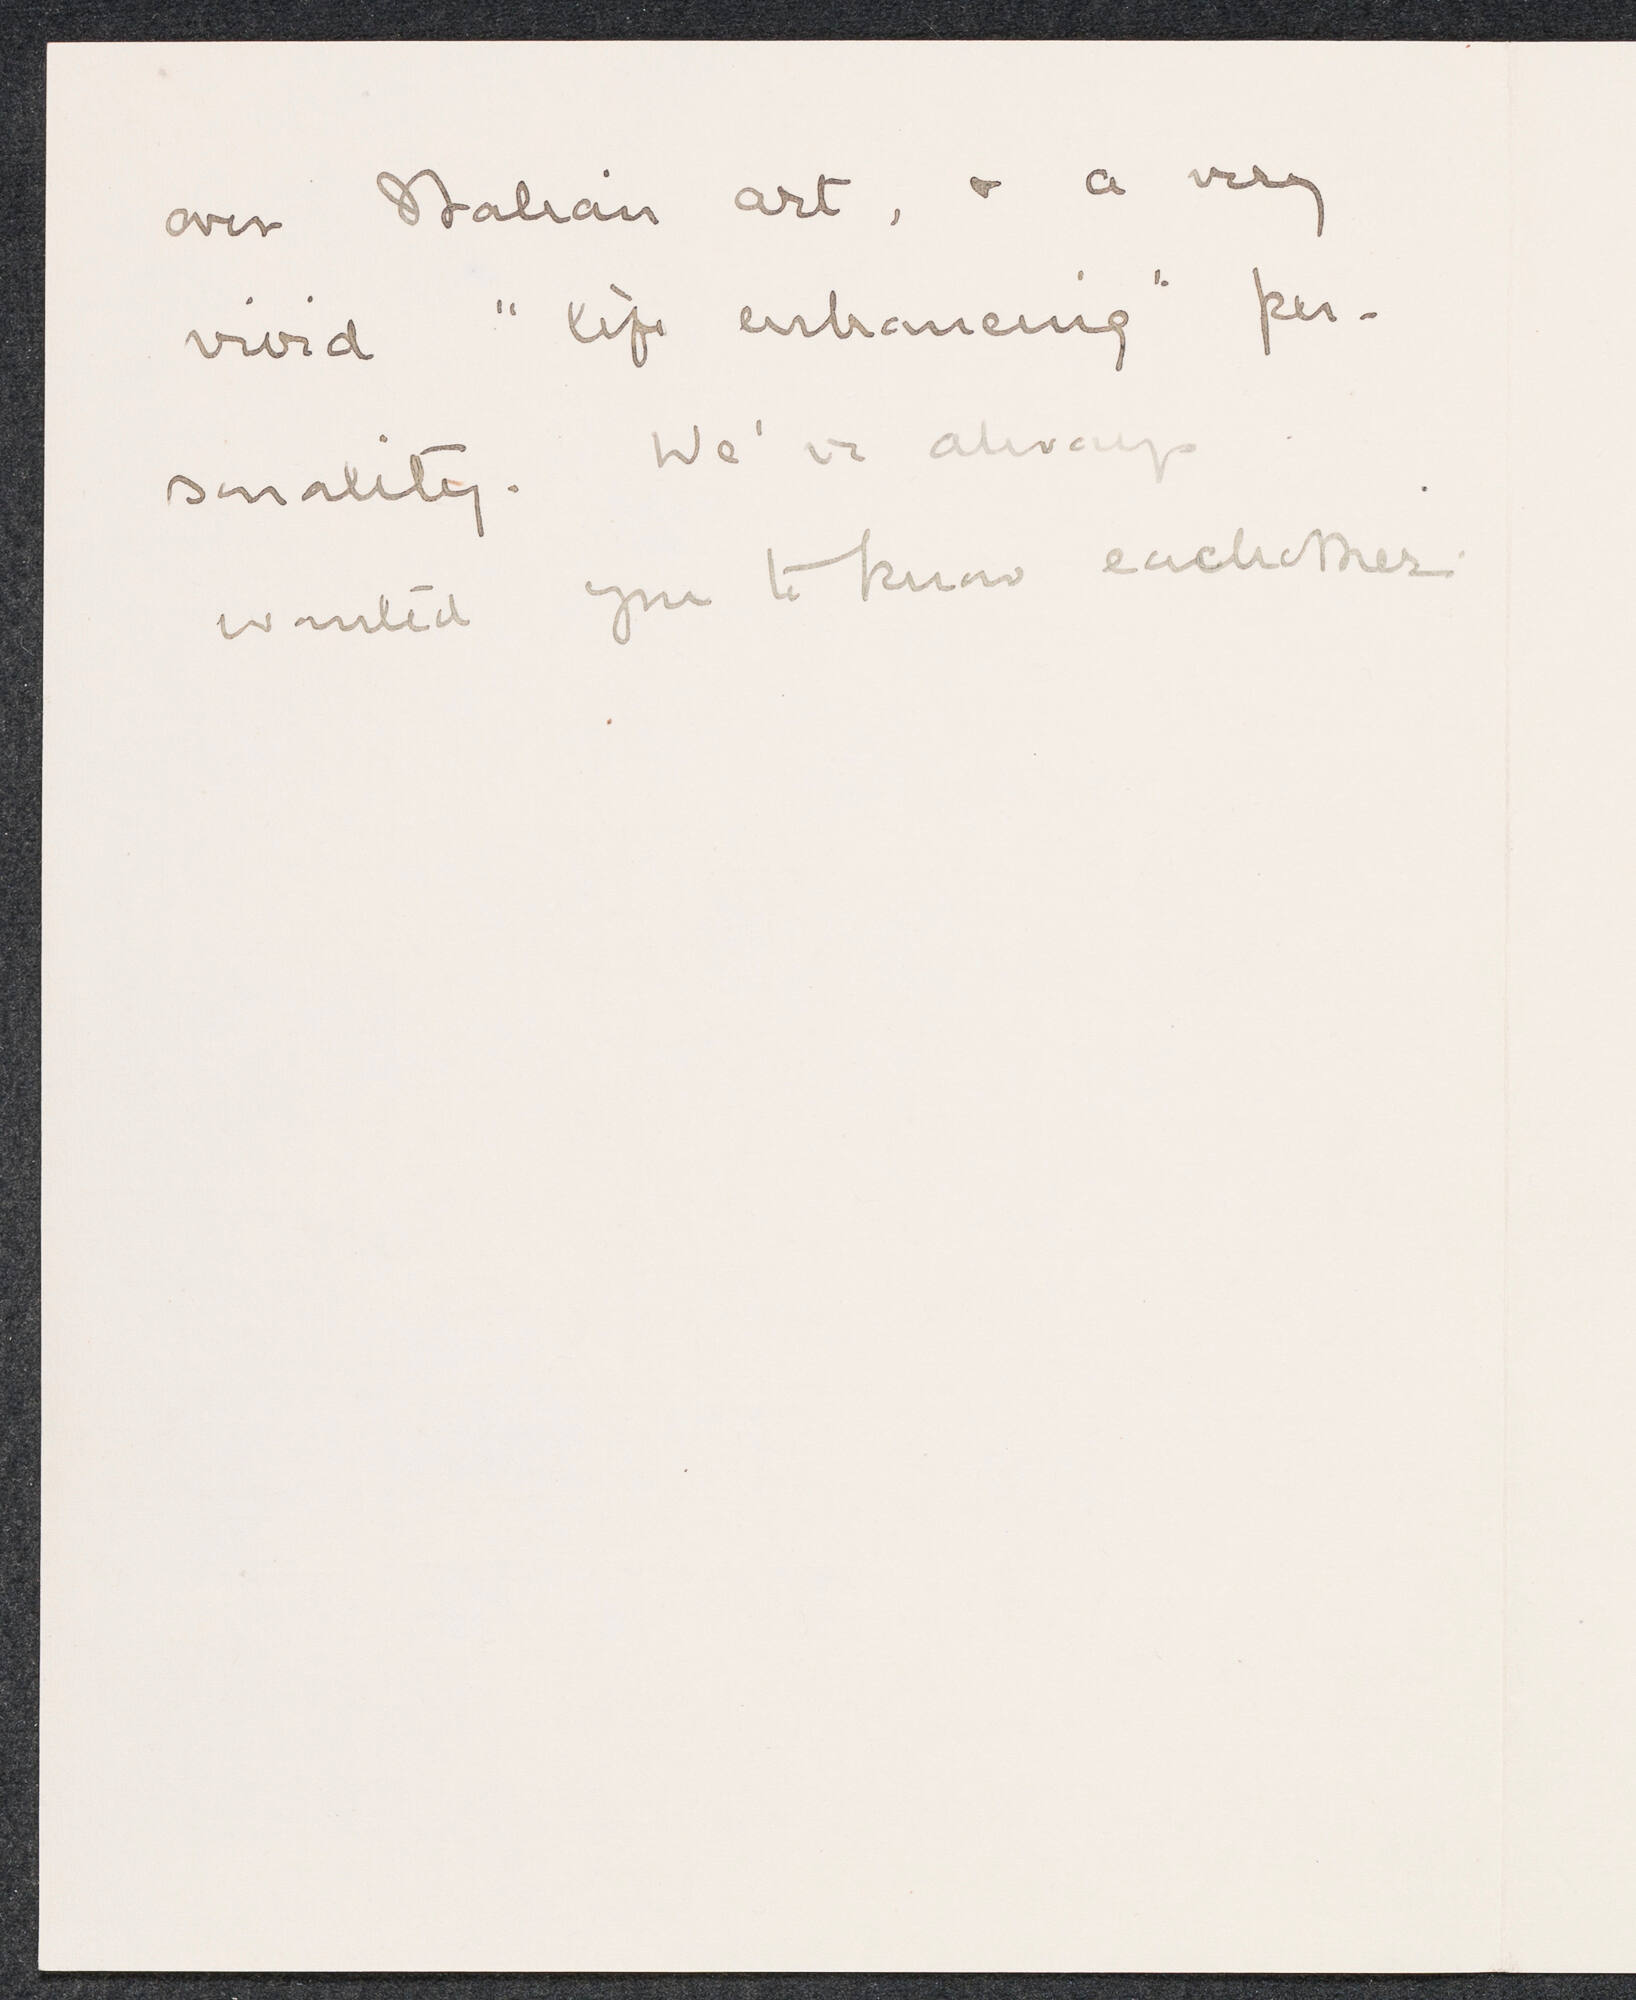 over Italian art, & a very
vivid "life enhancing" per-
sonality. We've always
wanted you to know eachother.